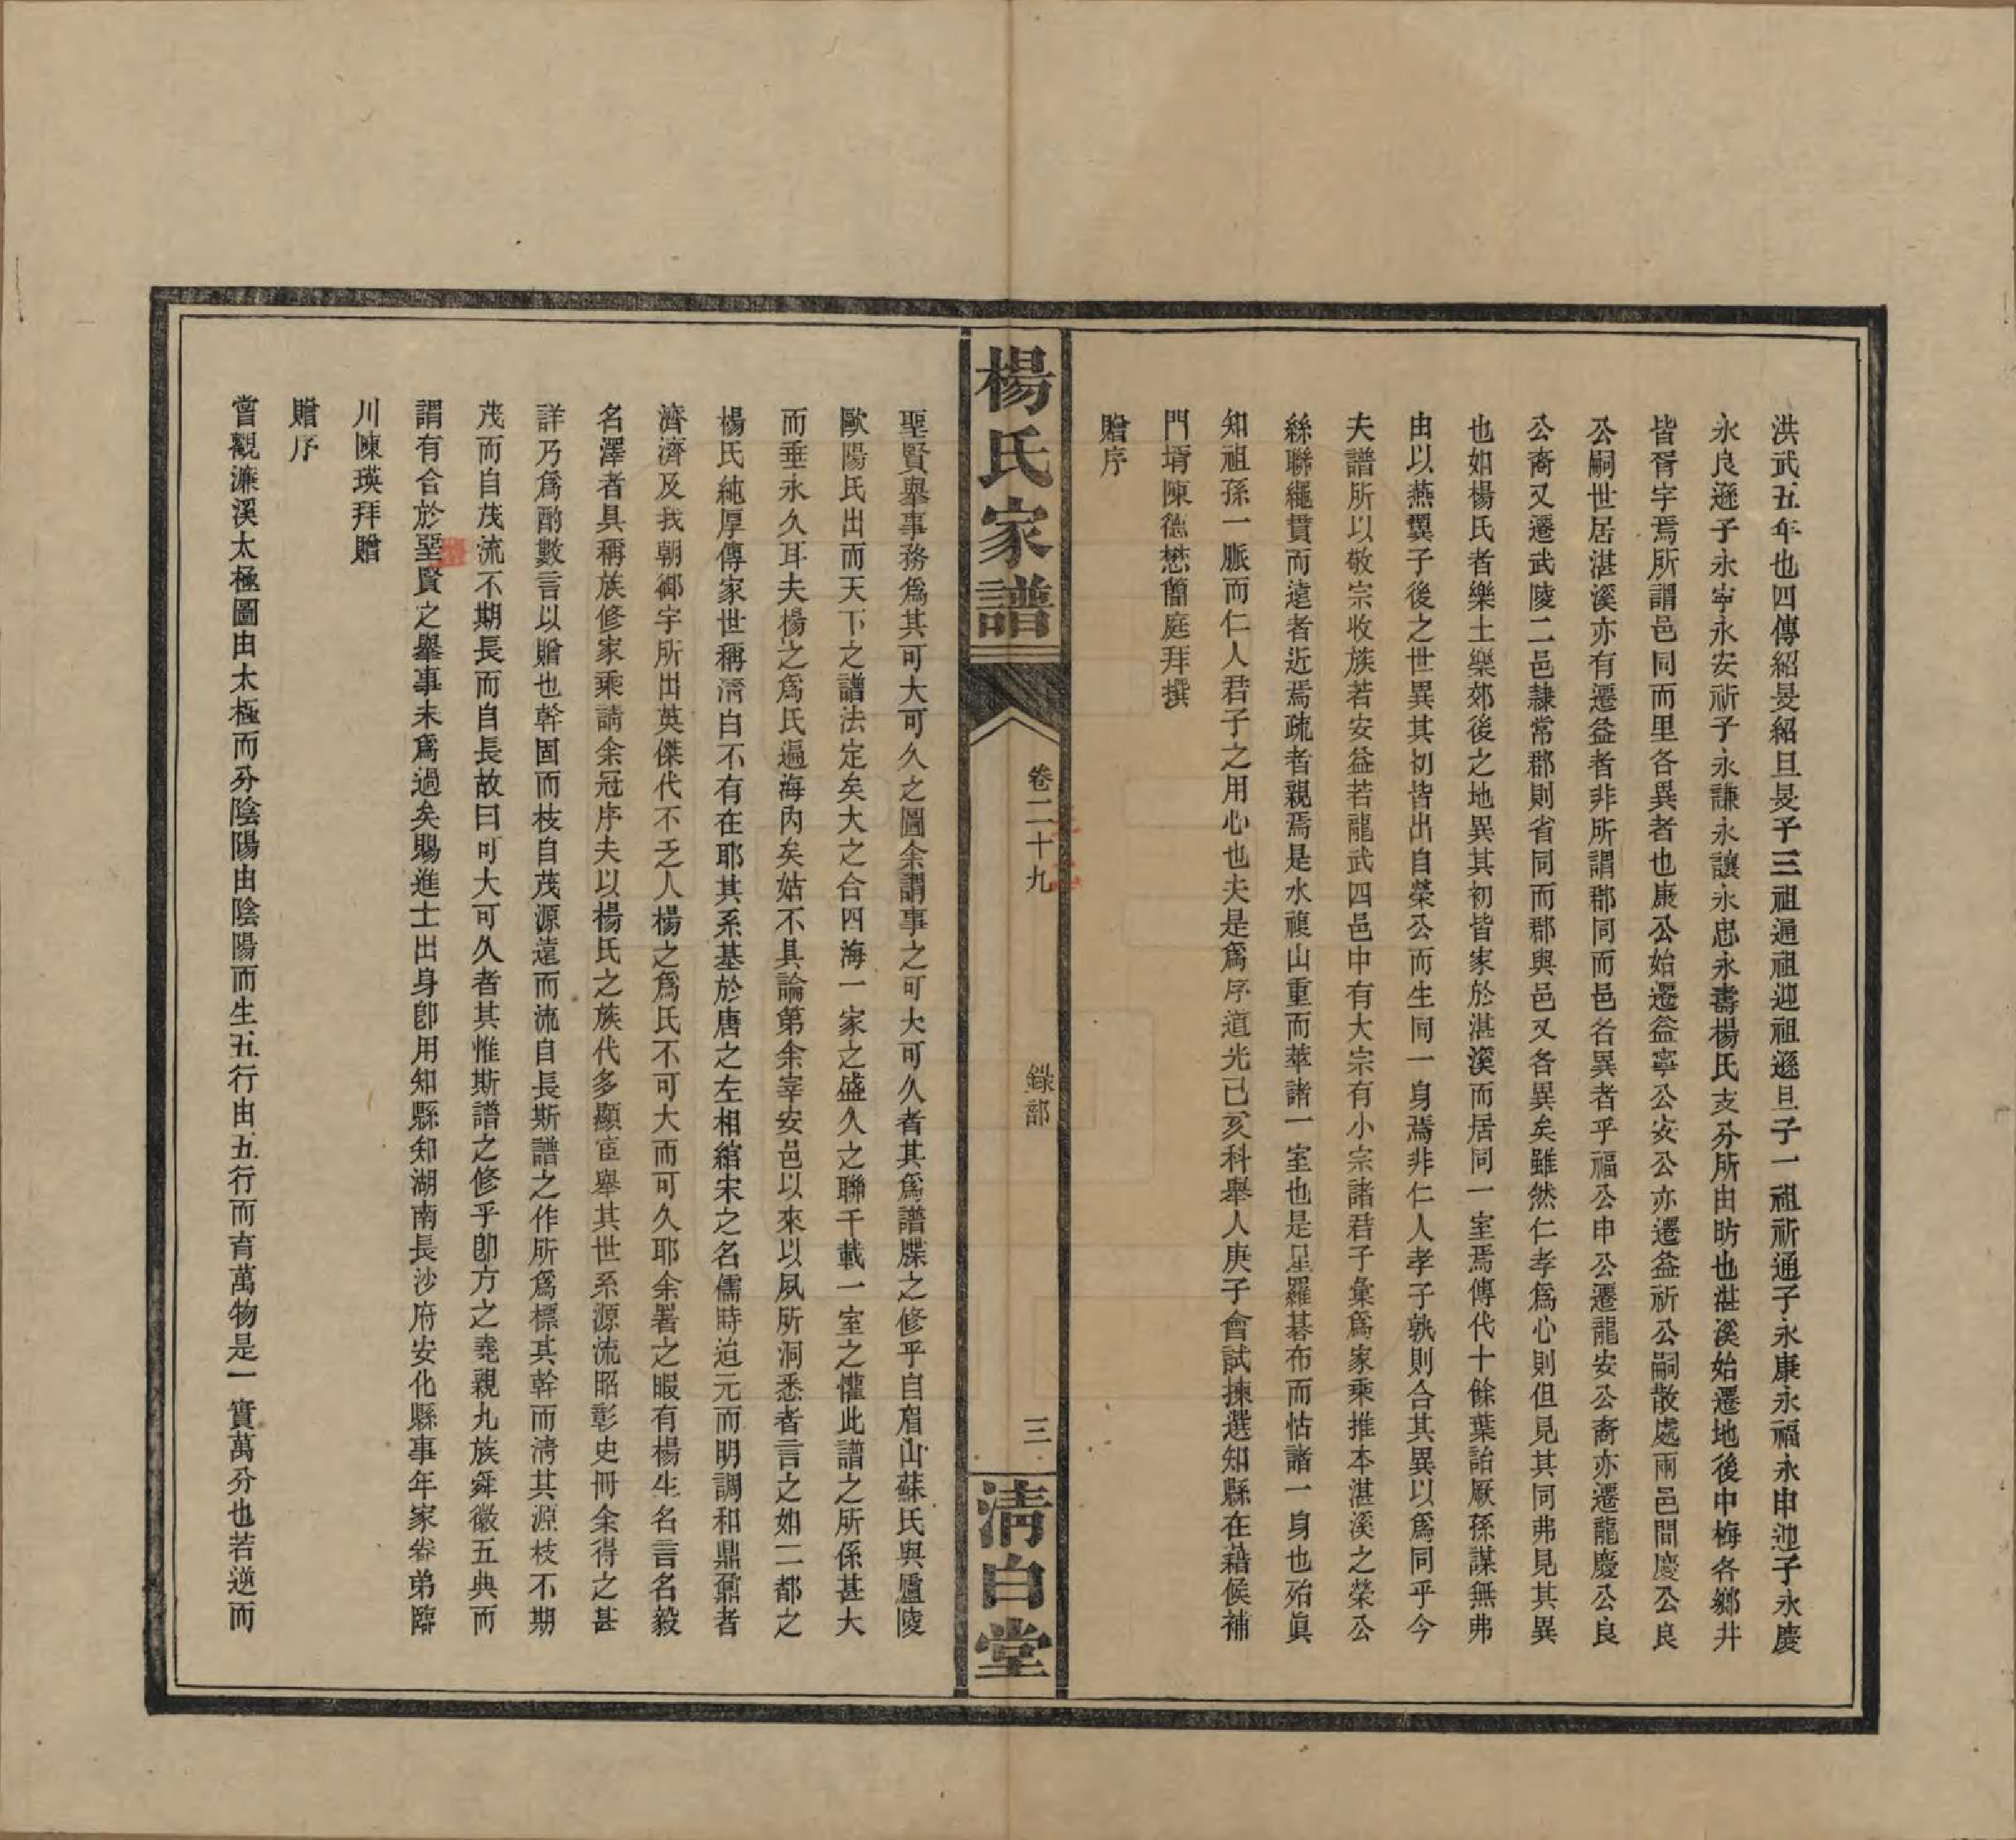 洪武五年也四傳紹旻紹旦旻子三祖通祖迎祖遜旦子一祖祈通子永康永福永申迎子永慶
永良遜子永寧永安祈子永謙永讓永忠永壽楊氏支分所由昉也湛溪始遷地後中梅各鄉井
皆胥宇焉所謂邑同而里各異者也康公始遷益寧公安公亦遷益祈公嗣散處兩邑間慶公良
公嗣世居湛溪亦有遷益者非所謂郡同而邑名異者乎福公申公遷龍安公裔亦遷龍慶公良
公裔又遷武陵二邑隸常郡則省同而郡與邑又各異矣雖然仁孝爲心則但見其同弗見其異
也如楊氏者樂土樂郊後之地異其初皆家於湛溪而居同一室焉傳代十餘葉詒厥孫謀無弗
由以燕翼子後之世異其初皆出自榮公而生同一身焉非仁人孝子孰則合其異以爲同乎今
夫譜所以敬宗收族若安益若龍武四邑中有大宗有小宗諸君子彙爲家乘推本湛溪之榮公
絲聯繩貫而遠者近焉疏者親焉是水複山重而萃諸一室也是星羅碁布而怙諸一身也殆眞
知祖孫一脈而仁人君子之用心也夫是爲序道光己亥科舉人庚子會試揀選知縣在藉候補
門壻陳德懋簡庭拜撰
贈序
楊氏家譜
卷二十九
錄部
三
清白堂
聖賢舉事務爲其可大可久之圖余謂事之可大可久者其爲譜牒之修乎自眉山蘇氏與廬陵
歐陽氏出而天下之譜法定矣大之合四海一家之盛久之聯千載一室之懽此譜之所係甚大
而垂永久耳夫楊之爲氏遍海內矣姑不具論第余宰安邑以來以夙所洞悉者言之如二都之
楊氏純厚傳家世稱清白不有在耶其系基於唐之左相綰宋之名儒時迨元而明調和鼎鼐者
濟濟及我朝御宇所出英傑代不乏人楊之爲氏不可大而可久耶余署之暇有楊生名言名毅
名澤者具稱族修家乘請余冠序夫以楊氏之族代多顯宦舉其世系源流昭彰史冊余得之甚
詳乃爲酌數言以贈也幹固而枝自茂源遠而流自長斯譜之作所爲標其幹而清其源枝不期
茂而自茂流不期長而自長故曰可大可久者其惟斯譜之修乎卽方之堯親九族舜徽五典而
謂有合於聖賢之舉事未爲過矣賜進士出身卽用知縣知湖南長沙府安化縣事年家眷弟臨
川陳瑛拜贈
贈序
嘗觀濂溪太極圖由太極而分陰陽由陰陽而生五行由五行而育萬物是一實萬分也若逆而